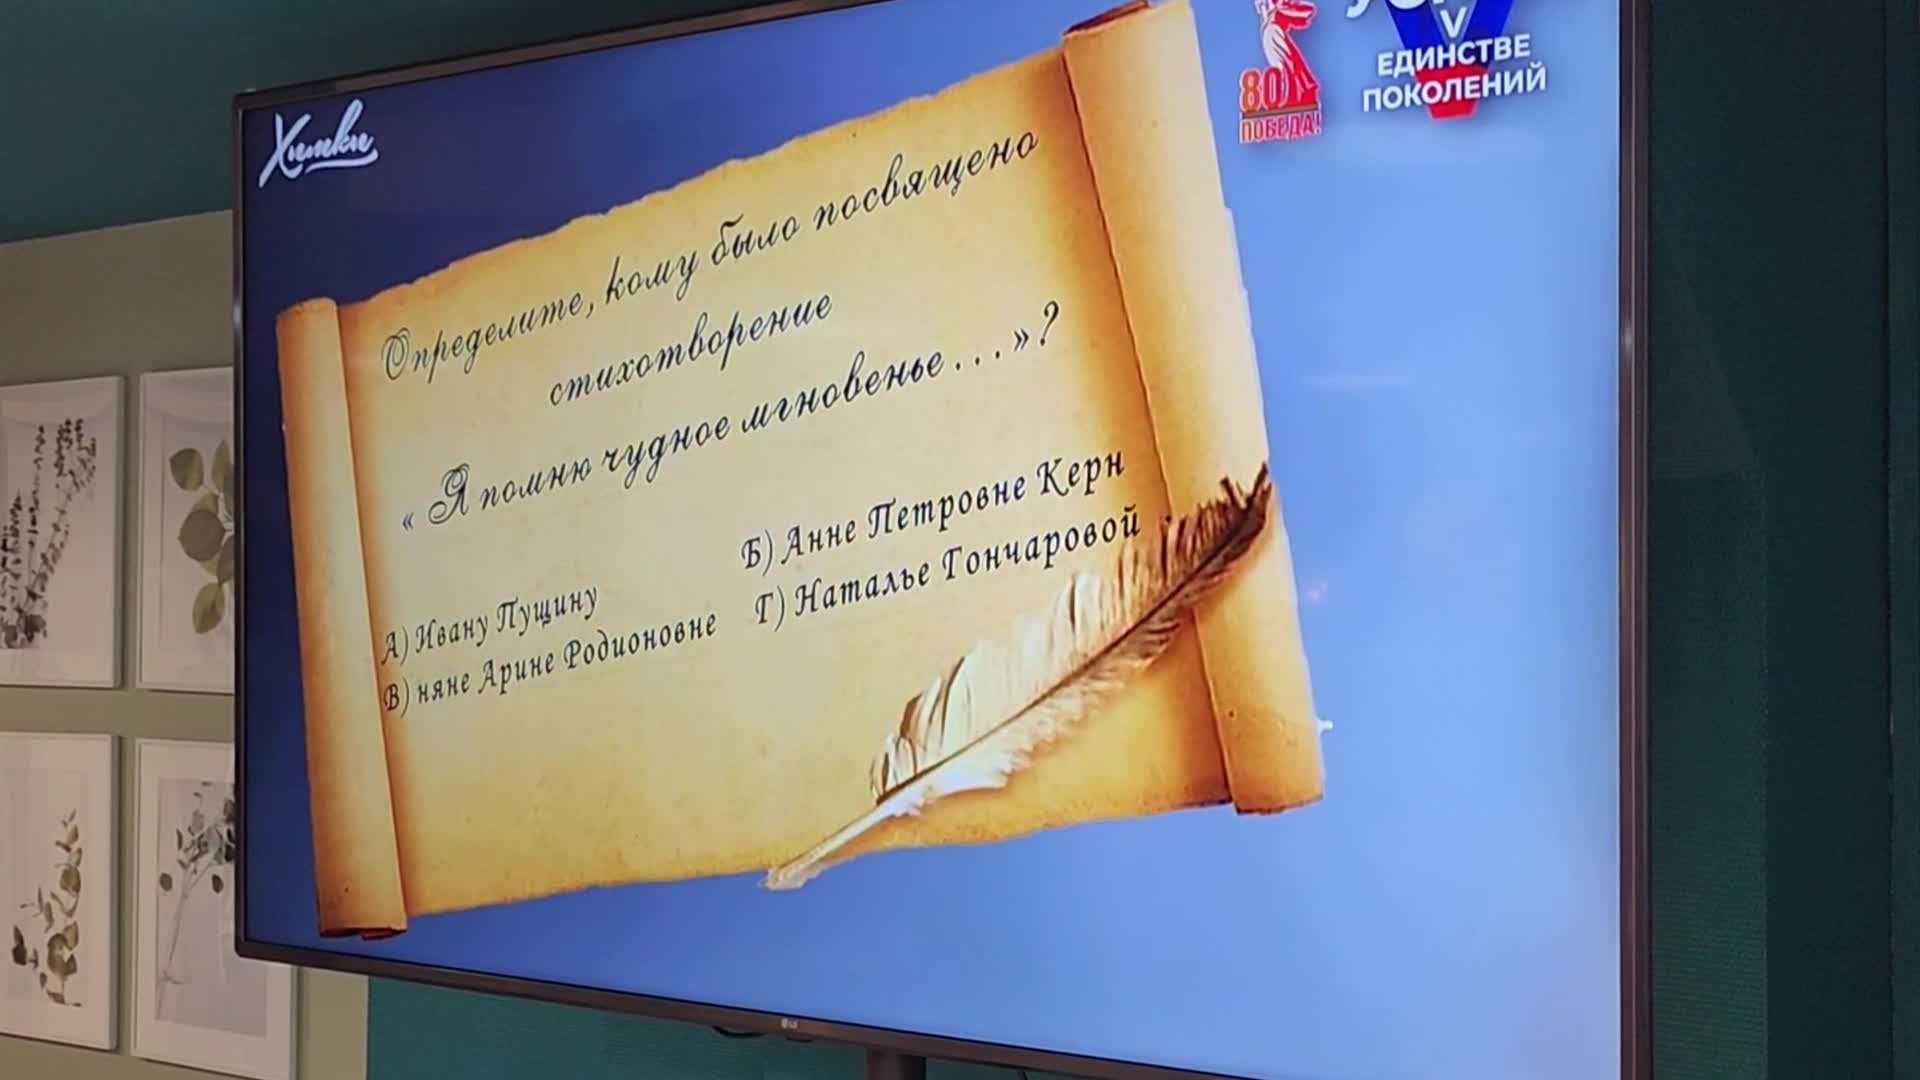 Химки
80
ПОБЕДА!
V
ЕДИНСТВЕ
ПОКОЛЕНИЙ
Определите, кому было посвящено
стихотворение
« Я помню чудное мгновенье...»?
А) Ивану Пущину
Б) Анне Петровне Керн
В) няне Арине Родионовне
Г) Наталье Гончаровой
LG